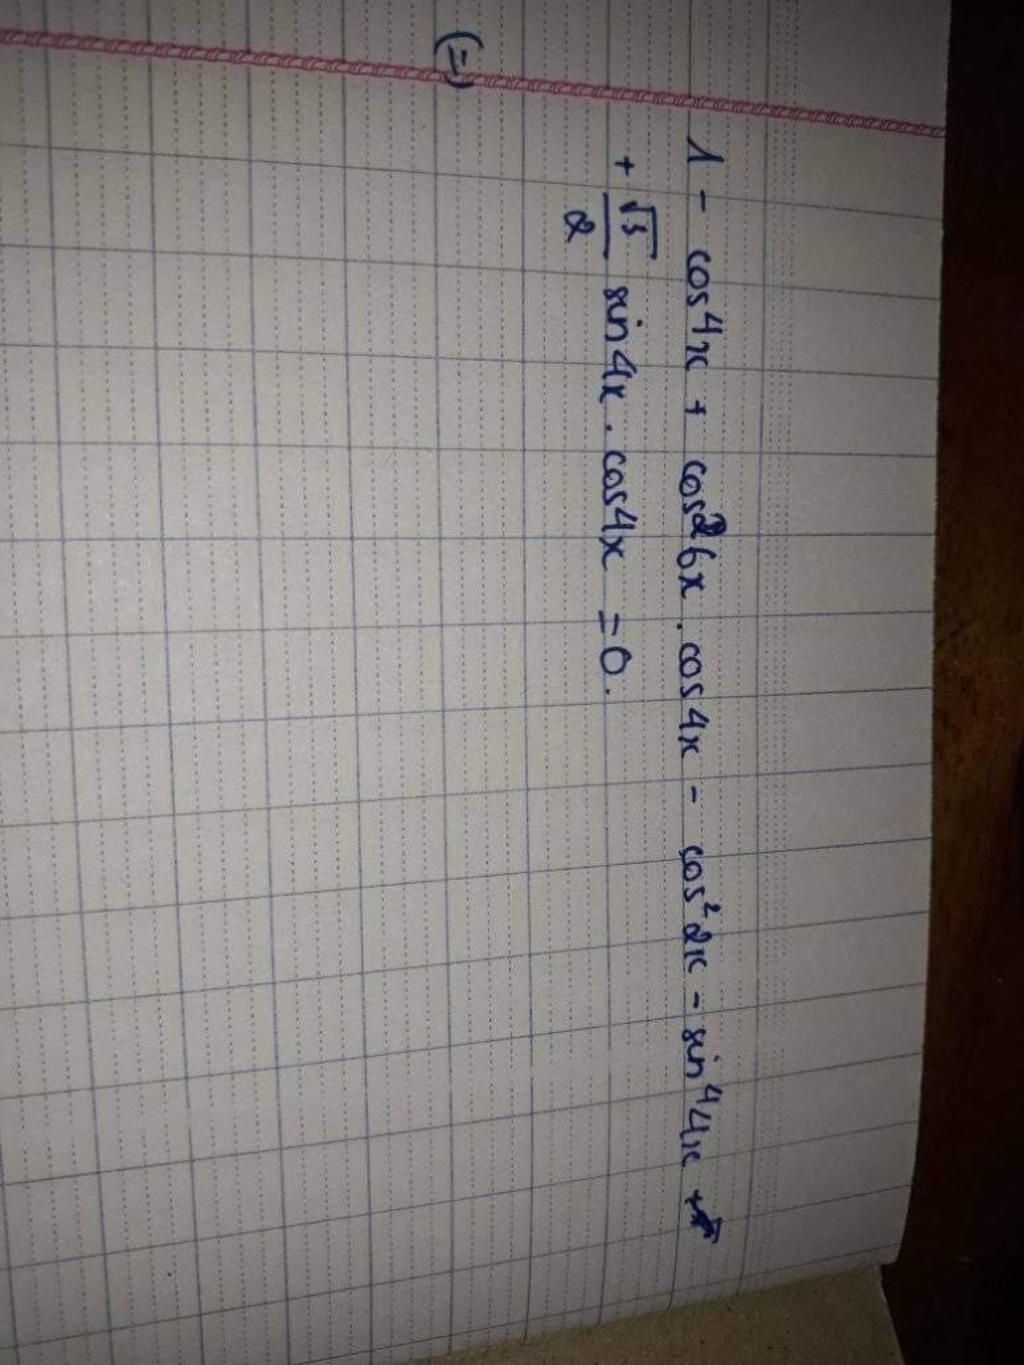 1 - cos4x + cos²6x . cos4x - cos²2x - sin⁴4x +
+ √3/2 sin4x . cos4x = 0.
(=)